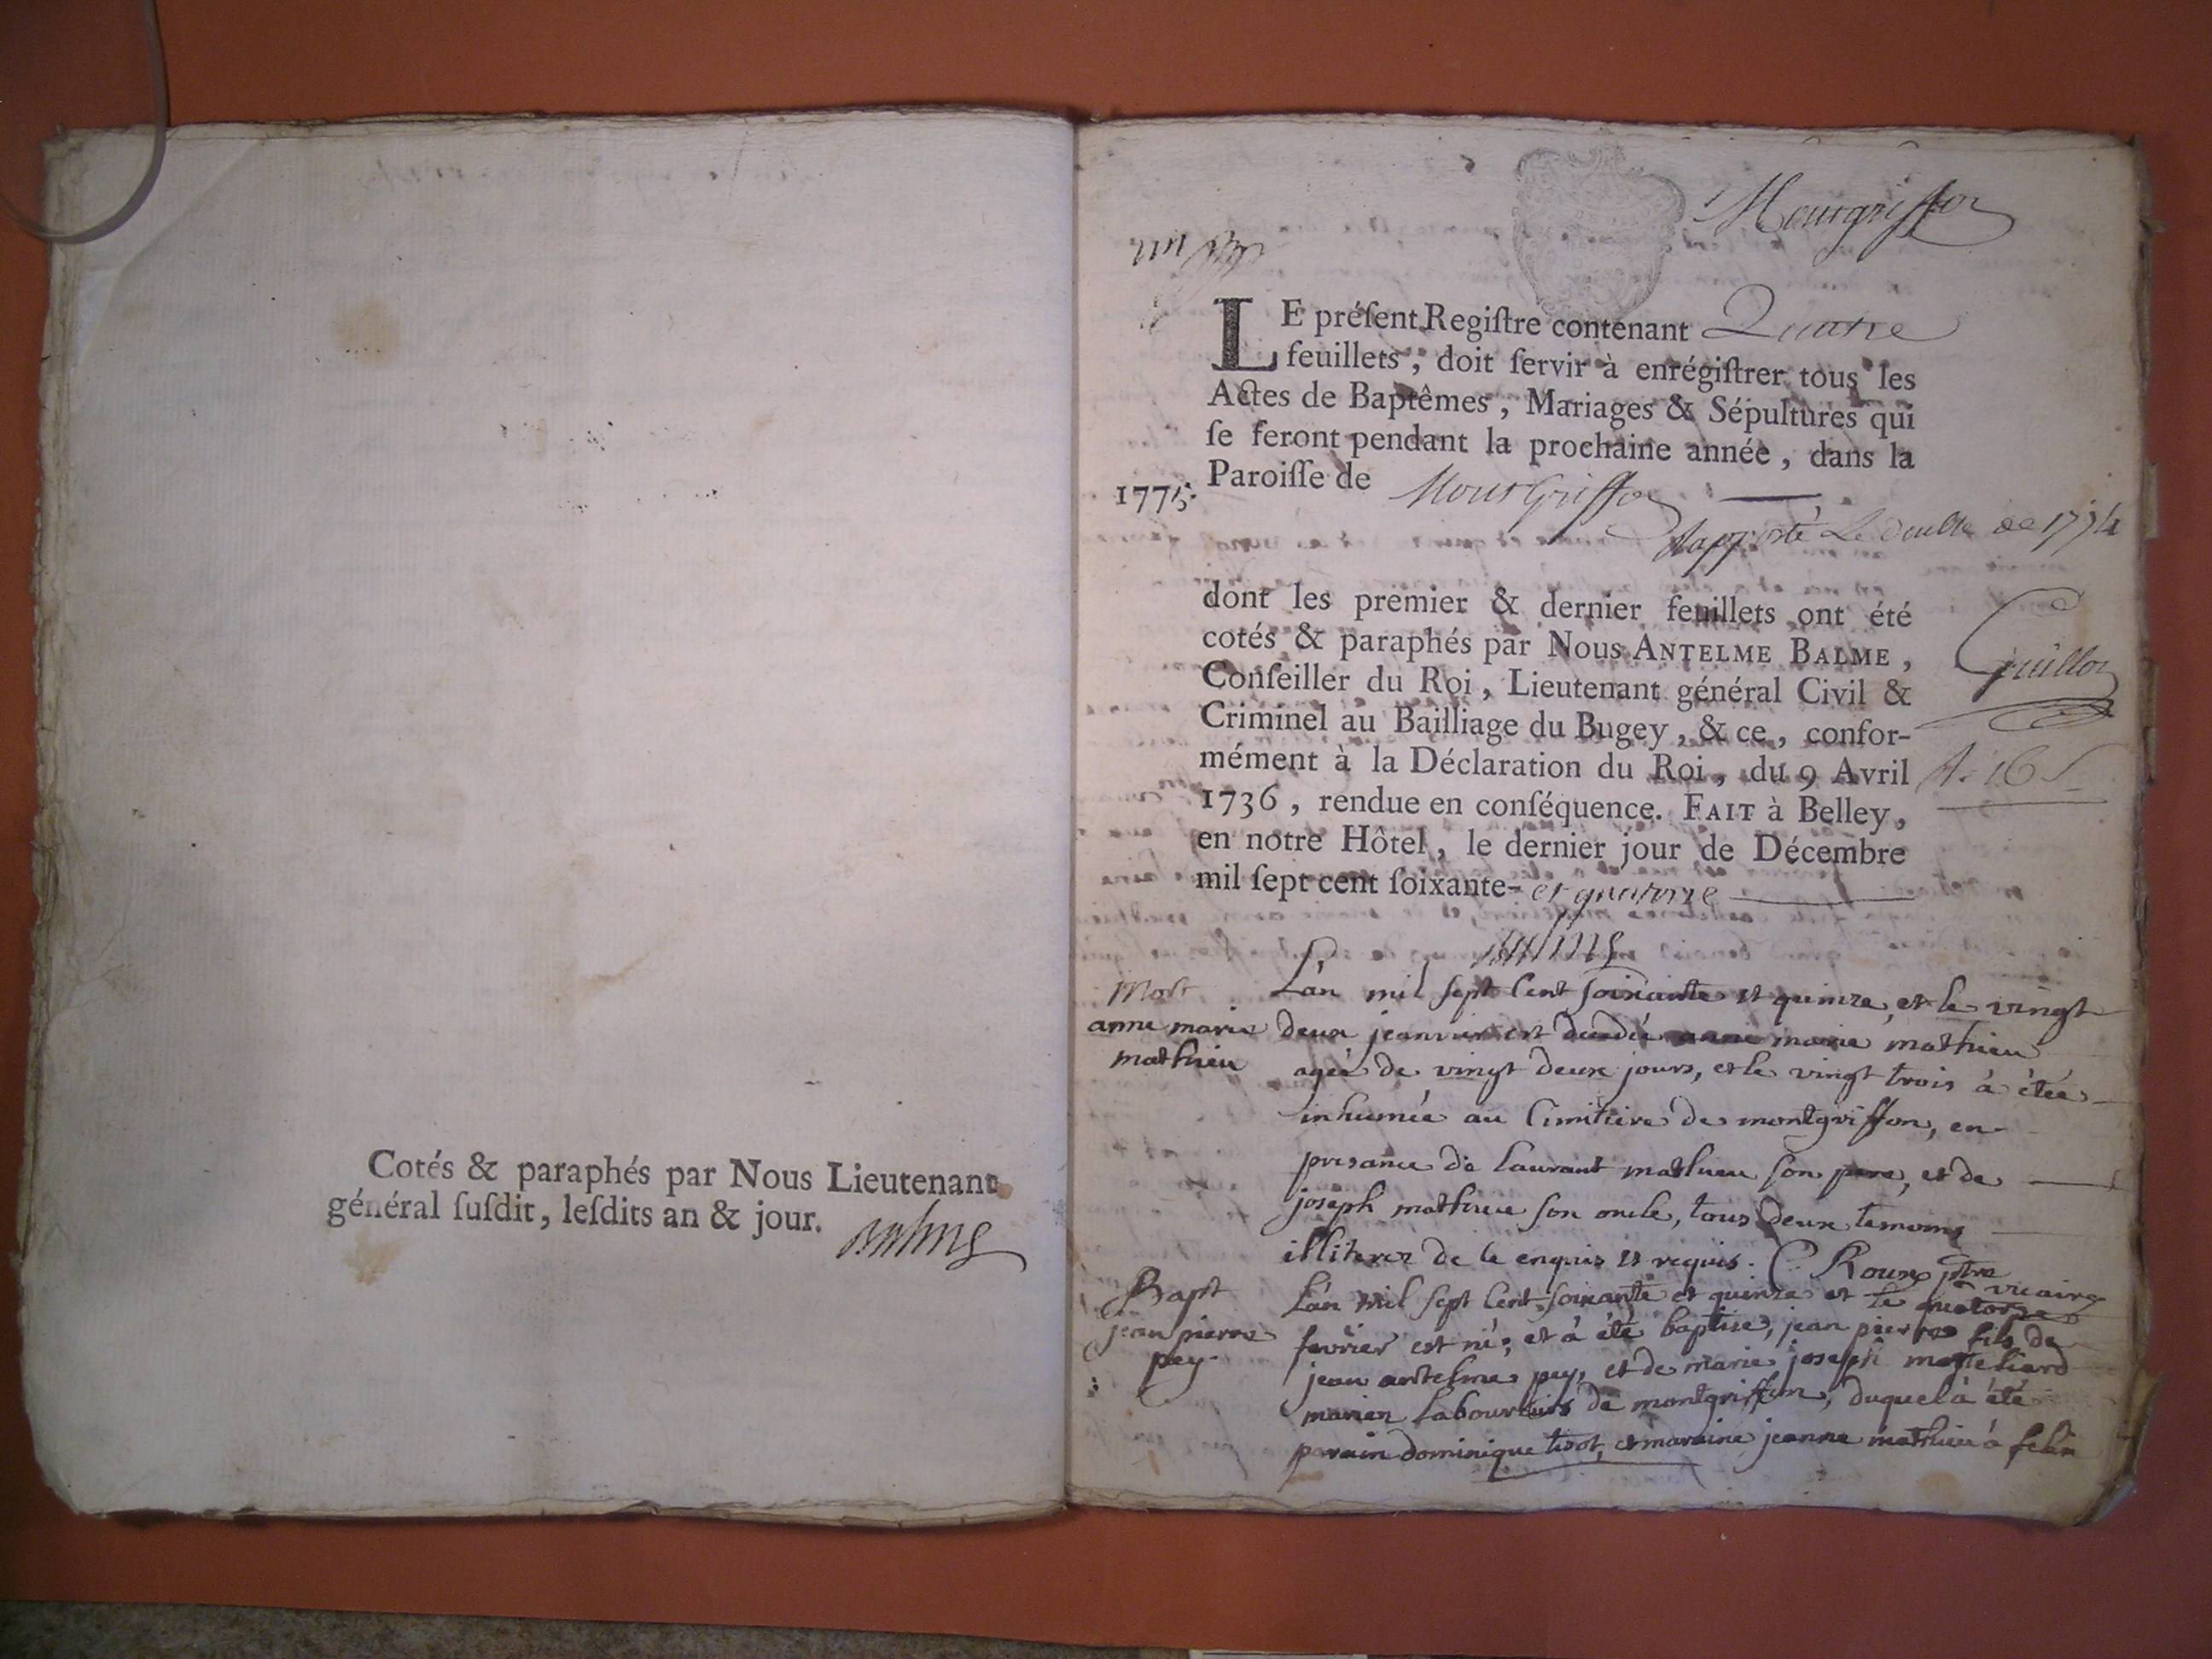 Cotés & paraphés par Nous Lieutenant
général ſuſdit, leſdits an & jour.
Balme
Montgriffon
un
LE préſent Regiſtre contenant Quatre
feuillets, doit ſervir à enrégiſtrer tous les
Actes de Baptêmes, Mariages & Sépultures qui
ſe feront pendant la prochaine année, dans la
Paroiſſe de Montgriffon
1775.
Rapporté le double de 1774
dont les premier & dernier feuillets ont été
cotés & paraphés par Nous ANTELME BALME,
Conſeiller du Roi, Lieutenant général Civil &
Criminel au Bailliage du Bugey, & ce, confor-
mément à la Déclaration du Roi, du 9 Avril
1736, rendue en conſéquence. FAIT à Belley,
en notre Hôtel, le dernier jour de Décembre
mil ſept cent ſoixante- et quatorze
Guillon
16 s
Balme
Mort
anne marie
mathieu
L'an mil sept cent soixante et quinze, et le vingt
deux jeanvier est decedée anne marie mathieu
agée de vingt deux jours, et le vingt trois à étée
inhumée au cimitiere de montgriffon, en
presance de laurant mathieu son pere, et de
joseph mathieu son oncle, tous deux temoins
illiterez de ce enquis et requis. C. Roux ptre
vicaire
Bapt
jean pierre
pey.
L'an mil sept cent soixante et quinze et le quatorze
fevrier est né, et à été baptise, jean pierre fils de
jean antelme pey, et de marie joseph
mariez laboureurs de montgriffon, duquel à été
parain dominique tisot, et maraine jeanne mathieu à